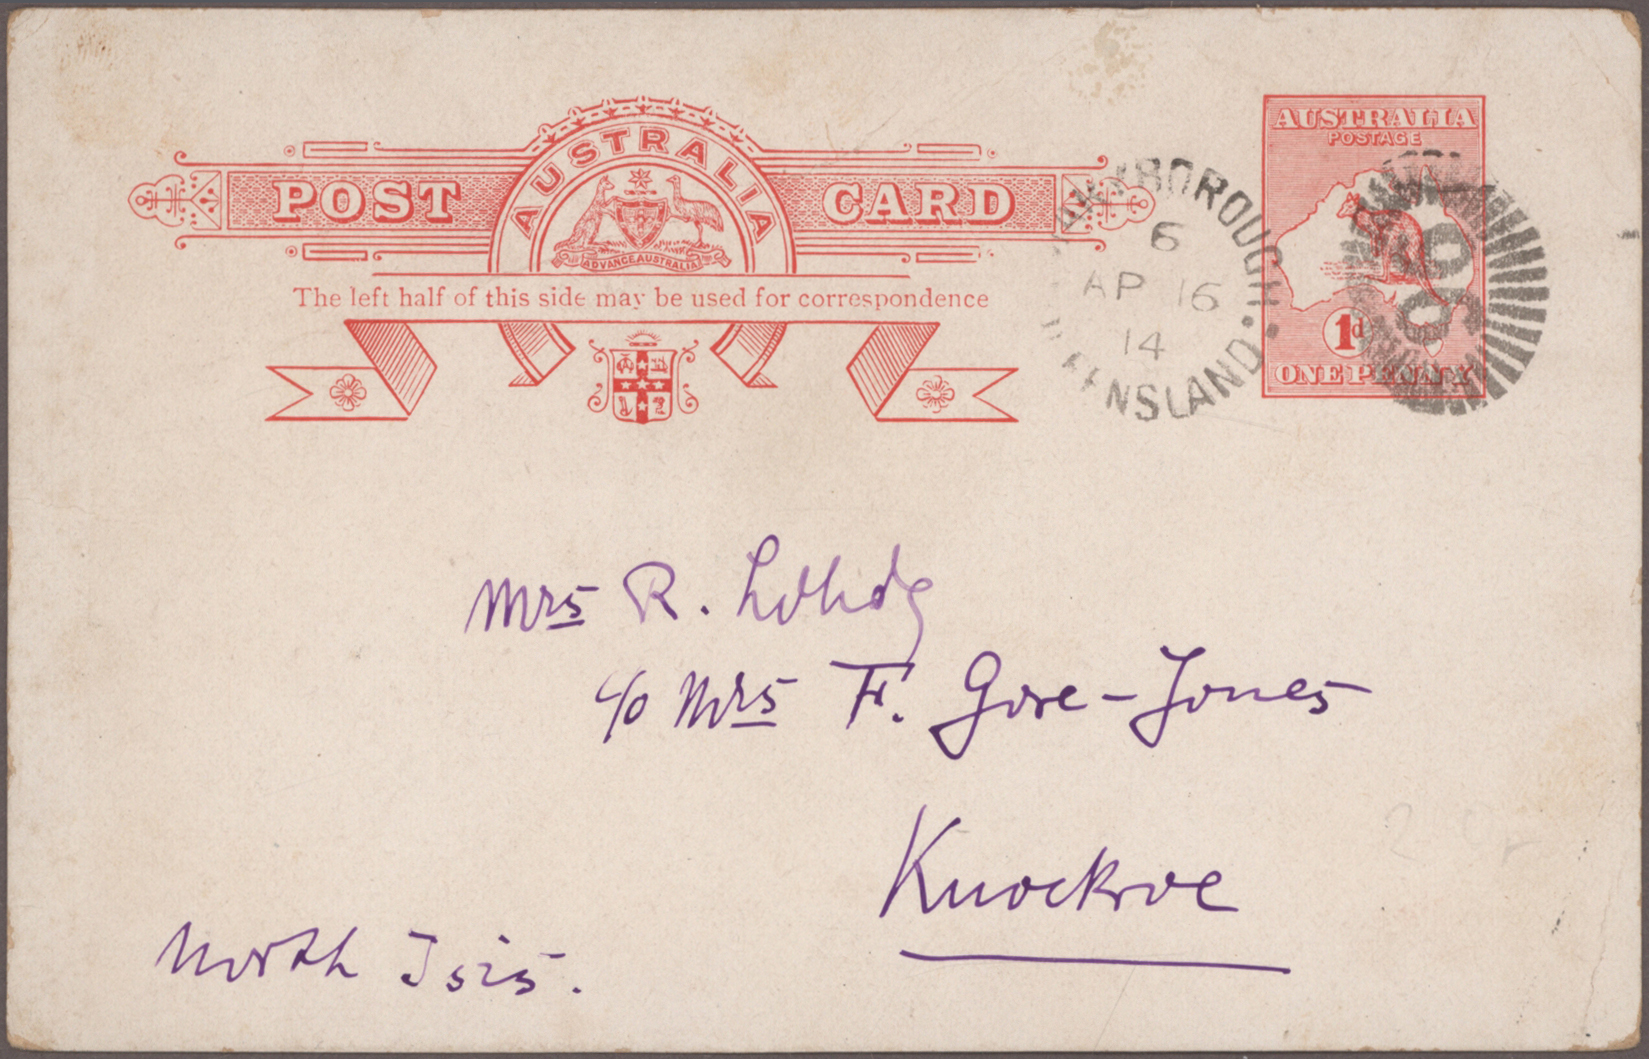 AUSTRALIA
POST CARD
ADVANCE AUSTRALIA
The left half of this side may be used for correspondence
AUSTRALIA
POSTAGE
1d
ONE PENNY
6
AP 16
14
Mrs R.
c/o Mrs F. Gore-Jones
Knockroe
North Isis.